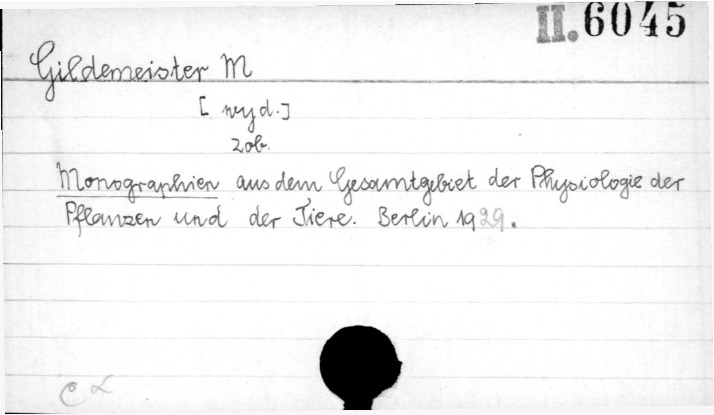 II. 6045
Gildemeister M
[wyd.]
zob.
Monographien aus dem Gesamtgebiet der Physiologie der
Pflanzen und der Tiere. Berlin 1929.